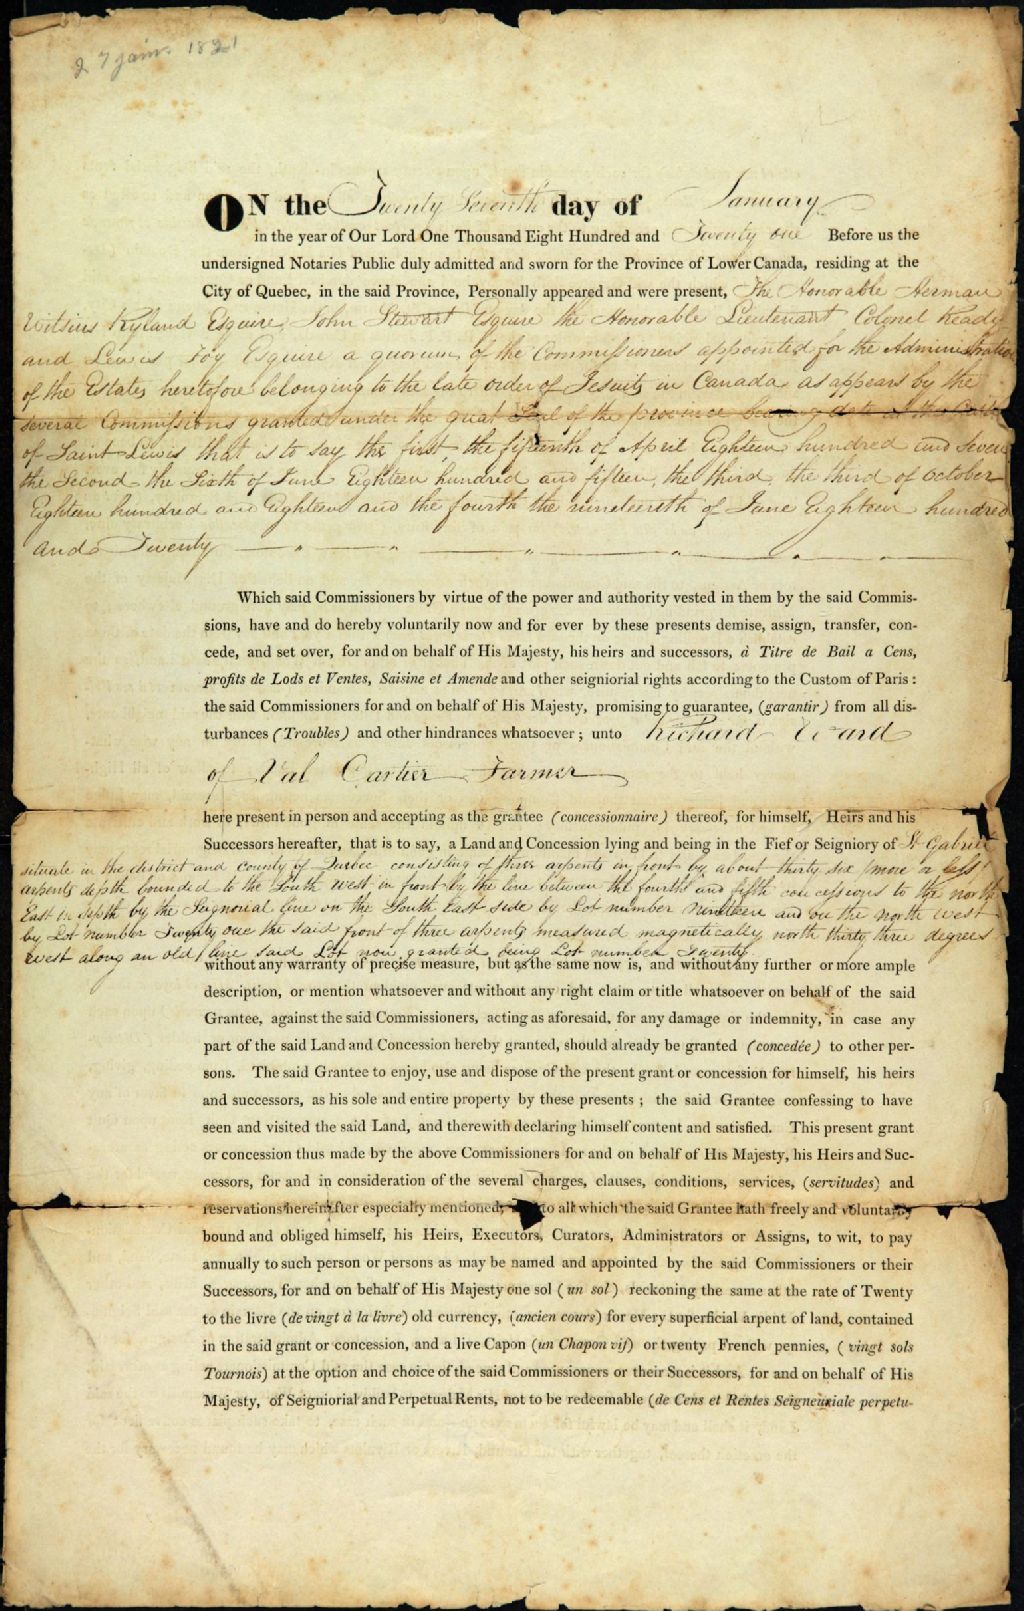 27 janv. 1821
ON the Twenty Seventh day of January
in the year of Our Lord One Thousand Eight Hundred and Twenty one Before us the
undersigned Notaries Public duly admitted and sworn for the Province of Lower Canada, residing at the
City of Quebec, in the said Province, Personally appeared and were present, The Honorable Herman
Witsius Ryland Esquire, John Stewart Esquire the Honorable Lieutenant Colonel Ready
and Lewis Foy Esquire a quorum of the Commissioners appointed for the Administration
of the Estates heretofore belonging to the late order of Jesuits in Canada as appears by the
several Commissions granted under the great Seal of the province bearing date at the Castle
of Saint Lewis that is to say the first, the fifteenth of April Eighteen hundred and Seven
the Second the Sixth of June Eighteen hundred and fifteen, the third, the third of October
Eighteen hundred and Eighteen and the fourth the nineteenth of June Eighteen hundred
and Twenty
Which said Commissioners by virtue of the power and authority vested in them by the said Commis-
sions, have and do hereby voluntarily now and for ever by these presents demise, assign, transfer, con-
cede, and set over, for and on behalf of His Majesty, his heirs and successors, à Titre de Bail a Cens,
profits de Lods et Ventes, Saisine et Amende and other seigniorial rights according to the Custom of Paris :
the said Commissioners for and on behalf of His Majesty, promising to guarantee, (garantir) from all dis-
turbances (Troubles) and other hindrances whatsoever ; unto Richard Ward
of Val Cartier Farmer
here present in person and accepting as the grantee (concessionnaire) thereof, for himself, Heirs and his
Successors hereafter, that is to say, a Land and Concession lying and being in the Fief or Seigniory of St Gabriel
situate in the district and county of Quebec consisting of three arpents in front by about thirty six (more or less)
arpents depth bounded to the South west in front by the line between the fourth and fifth concessions to the north
East in depth by the Seignorial line on the South East side by Lot number nineteen and on the north west
by Lot number Twenty one the said front of three arpents measured magnetically north thirty three degrees
west along an old line said Lot now granted being Lot number Twenty.
without any warranty of precise measure, but as the same now is, and without any further or more ample
description, or mention whatsoever and without any right claim or title whatsoever on behalf of the said
Grantee, against the said Commissioners, acting as aforesaid, for any damage or indemnity, in case any
part of the said Land and Concession hereby granted, should already be granted (concedée) to other per-
sons. The said Grantee to enjoy, use and dispose of the present grant or concession for himself, his heirs
and successors, as his sole and entire property by these presents ; the said Grantee confessing to have
seen and visited the said Land, and therewith declaring himself content and satisfied. This present grant
or concession thus made by the above Commissioners for and on behalf of His Majesty, his Heirs and Suc-
cessors, for and in consideration of the several charges, clauses, conditions, services, (servitudes) and
reservations hereinafter especially mentioned, to all which the said Grantee hath freely and voluntarily
bound and obliged himself, his Heirs, Executors, Curators, Administrators or Assigns, to wit, to pay
annually to such person or persons as may be named and appointed by the said Commissioners or their
Successors, for and on behalf of His Majesty one sol (un sol) reckoning the same at the rate of Twenty
to the livre (de vingt à la livre) old currency, (ancien cours) for every superficial arpent of land, contained
in the said grant or concession, and a live Capon (un Chapon vif) or twenty French pennies, ( vingt sols
Tournois) at the option and choice of the said Commissioners or their Successors, for and on behalf of His
Majesty, of Seigniorial and Perpetual Rents, not to be redeemable (de Cens et Rentes Seigneuriale perpetu-